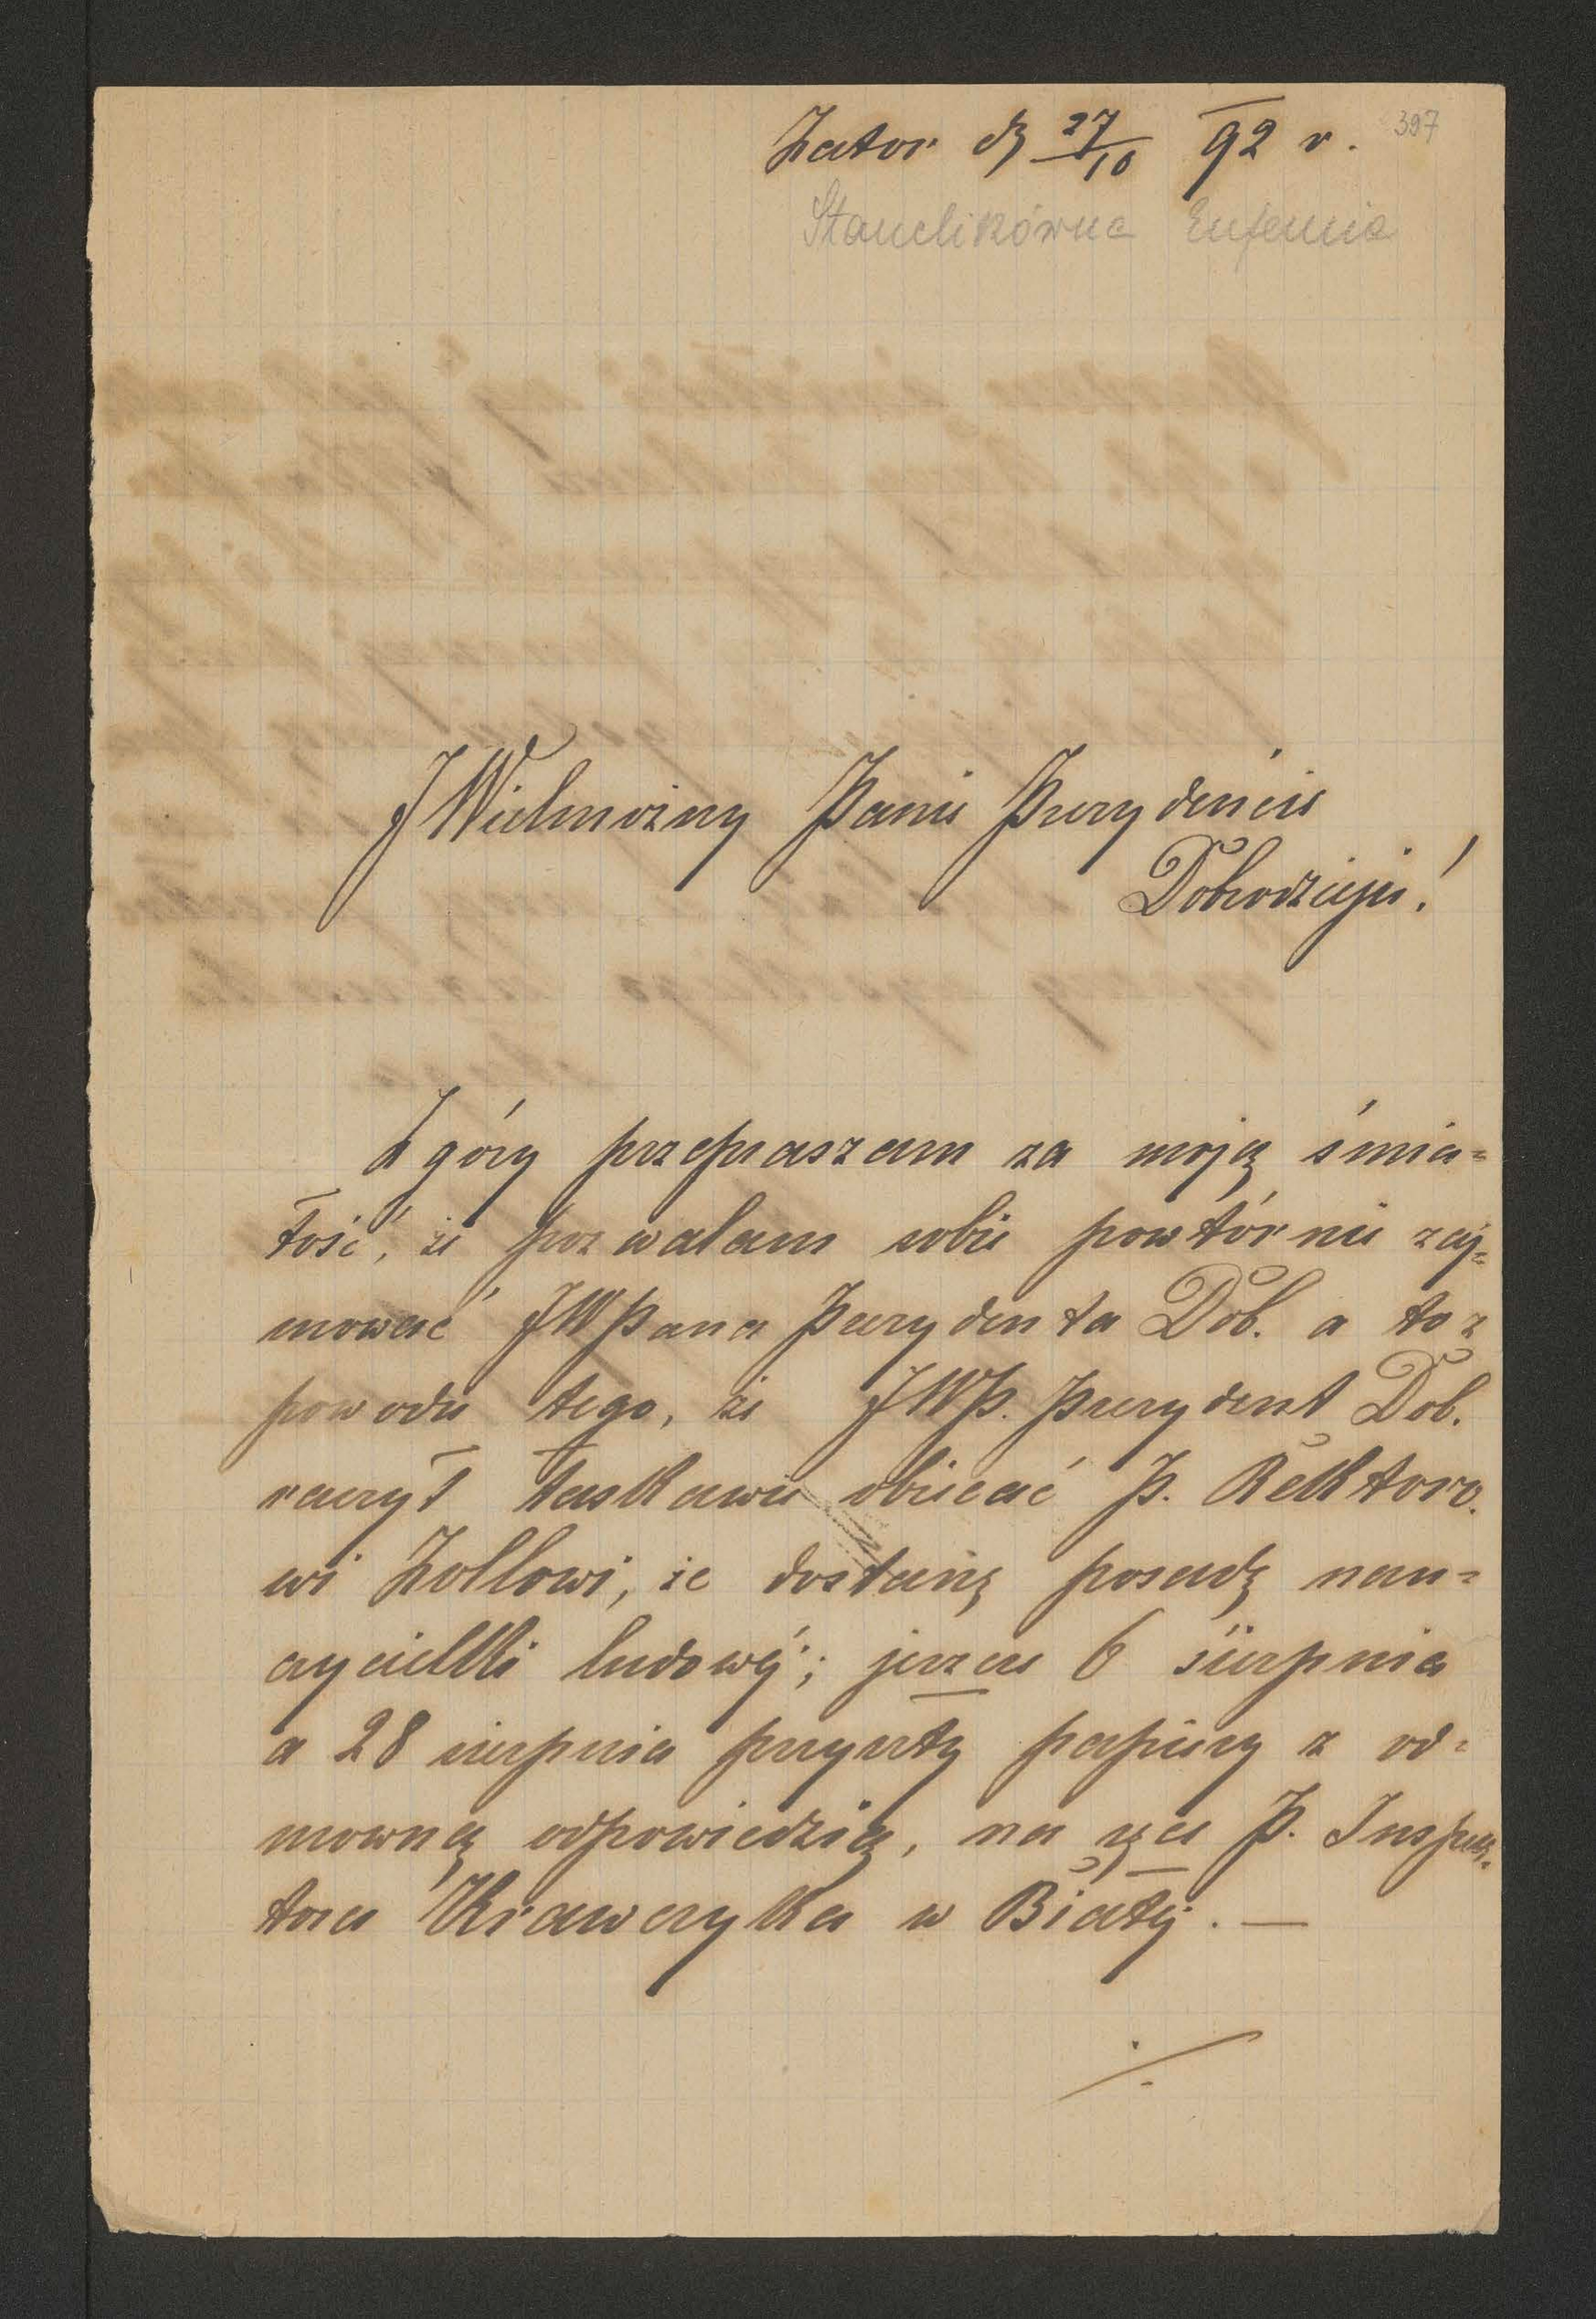 Zator dz 27/10 92 r. 397
Stanclikówna Eufemia
JWielmożny Panie Prezydencie
Dobrodzieju!
Z góry przepraszam za moją śmia=
łość, że pozwalam sobie powtórnie zaj=
mować JWPana Prezydenta Dob. a to z
powodu tego, że JWP. Prezydent Dob.
raczył łaskawie obiecać P. Rektoro-
wi Zollowi, że dostanę posadę nau=
czycielki ludowéj; jeszcze 6 sierpnia
a 28 sierpnia przyszły papiery z od=
mowną odpowiedzią, na ręce P. Inspek=
tora Krawczyka w Białéj. —
./.